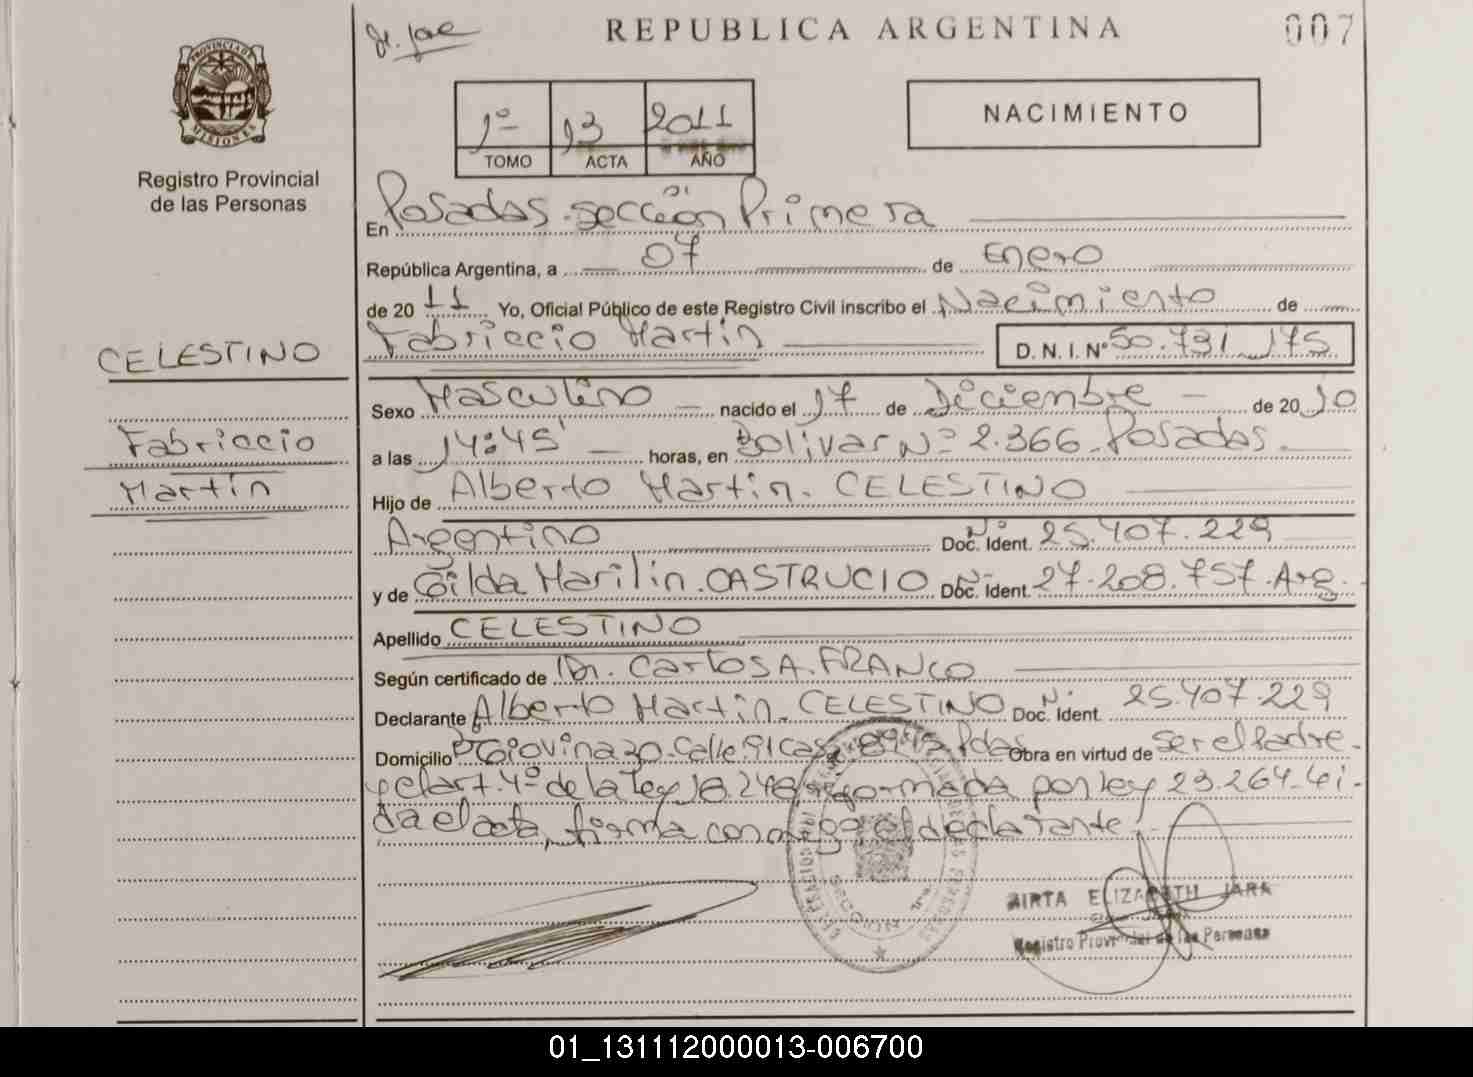 Sr. Jose
REPUBLICA ARGENTINA
007
PROVINCIA DE
MISIONES
Registro Provincial
de las Personas
1º 13 2011
TOMO ACTA AÑO
NACIMIENTO
En Posadas - sección Primera
República Argentina, a 07 de Enero
de 2011 Yo, Oficial Público de este Registro Civil inscribo el Nacimiento de
Fabriccio Martin D. N. I. Nº 50.731.175
CELESTINO
Fabriccio
Martin
Sexo Masculino nacido el 17 de Diciembre de 2010
a las 14:45' horas, en Bolivar Nº 2.366 - Posadas.
Hijo de Alberto Martin. CELESTINO
Argentino Doc. Ident. Nº 25.407.229
y de Gilda Marilin. CASTRUCIO Doc. Ident. Nº 27.208.757. Arg.
Apellido CELESTINO
Según certificado de Dr. Carlos A. FRANCO
Declarante Alberto Martin. CELESTINO Doc. Ident. Nº 25.407.229
Domicilio Bº Giovinazo. Calle. 91 Casa 8945 Pdas Obra en virtud de Ser el Padre -
y el art. 4º de la ley 18.248 reformada por ley 23.264. Lei-
da el acta, firma conmigo el declarante.
SECCION 1ra
MIRTA ELIZABETH JARA
Registro Provincial de las Personas
01_131112000013-006700